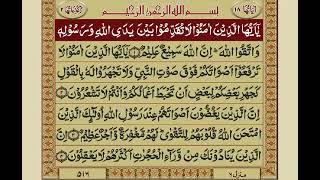 بِسْمِ اللّٰهِ الرَّحْمٰنِ الرَّحِيْمِ
يٰۤاَيُّهَا الَّذِيْنَ اٰمَنُوْا لَا تُقَدِّمُوْا بَيْنَ يَدَيِ اللّٰهِ وَرَسُوْلِهٖ
وَاتَّقُوا اللّٰهَ ؕ اِنَّ اللّٰهَ سَمِيْعٌ عَلِيْمٌ ۝ يٰۤاَيُّهَا الَّذِيْنَ اٰمَنُوْا لَا
تَرْفَعُوْۤا اَصْوَاتَكُمْ فَوْقَ صَوْتِ النَّبِيِّ وَلَا تَجْهَرُوْا لَهٗ بِالْقَوْلِ
كَجَهْرِ بَعْضِكُمْ لِبَعْضٍ اَنْ تَحْبَطَ اَعْمَالُكُمْ وَاَنْتُمْ لَا تَشْعُرُوْنَ ۝ اِنَّ
الَّذِيْنَ يَغُضُّوْنَ اَصْوَاتَهُمْ عِنْدَ رَسُوْلِ اللّٰهِ اُولٰٓئِكَ الَّذِيْنَ
امْتَحَنَ اللّٰهُ قُلُوْبَهُمْ لِلتَّقْوٰى ؕ لَهُمْ مَّغْفِرَةٌ وَّاَجْرٌ عَظِيْمٌ ۝ اِنَّ
الَّذِيْنَ يُنَادُوْنَكَ مِنْ وَّرَآءِ الْحُجُرٰتِ اَكْثَرُهُمْ لَا يَعْقِلُوْنَ ۝
منزل ٦
٥١٦